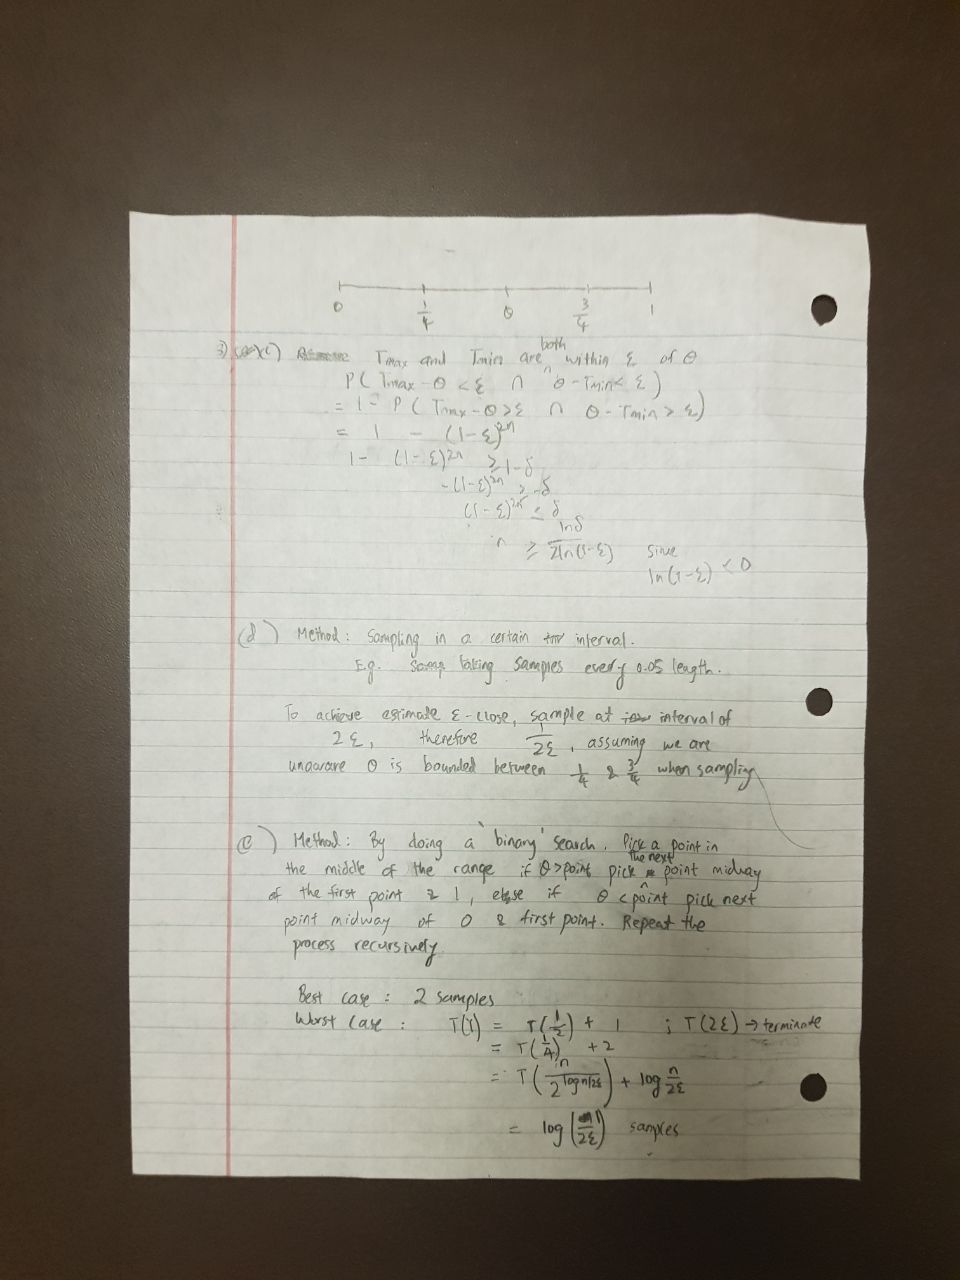 0 1/4 θ 3/4 1
3) (c) Tmax and Tmin are both within ε of θ
P( Tmax - θ < ε ∩ θ - Tmin < ε )
= 1 - P( Tmax - θ > ε ∩ θ - Tmin > ε )
= 1 - (1-ε)^2n
1 - (1-ε)^2n ≥ 1-δ
-(1-ε)^2n ≥ -δ
(1-ε)^2n ≤ δ
n ≥ lnδ / 2ln(1-ε) since
ln(1-ε) < 0
(d) Method: Sampling in a certain interval.
E.g. taking samples every 0.05 length.
To achieve estimate ε-close, sample at interval of
2ε, therefore 1/2ε, assuming we are
unaware θ is bounded between 1/4 & 3/4 when sampling
(e) Method: By doing a 'binary' search. Pick a point in
the middle of the range if θ > point pick the next point midway
of the first point & 1, else if θ < point pick next
point midway of 0 & first point. Repeat the
process recursively.
Best case: 2 samples
Worst case: T(1) = T(1/2) + 1 ; T(2ε) → terminate
= T(1/4) + 2
= T(n / 2^log n/2ε) + log n/2ε
= log(1/2ε) samples